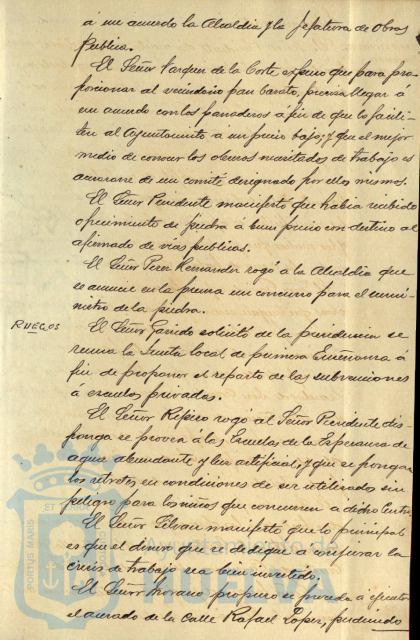 á un acuerdo la Alcaldia y la Jefatura de Obras
publica.
El Señor Vazquez de la Corte expuso que para pro-
porcionar al vecindario pan barato, precisa llegar á
un acuerdo con los panaderos á fin de que lo facili-
ten al Ayuntamiento á un precio bajo; y que el mejor
medio de conocer los obreros necesitados de trabajo es
asesorarse de un comité designado por ellos mismos.
El Señor Presidente manifestó que habia recibido
ofrecimiento de piedra á buen precio con destino al
afirmado de vias publicas.
El Señor Perez Hernandez rogó á la Alcaldia que
se anuncie en la prensa un concurso para el sumi-
nistro de la piedra.
RUEGOS
El Señor Garrido solicitó de la presidencia se
reuna la Junta local de primera Enseñanza á
fin de proponer el reparto de las subvenciones
á escuelas privadas.
El Señor rogó al Señor Presidente dis-
ponga se provea á las Escuelas de la Esperanza de
agua abundante y luz artificial; y que se pongan
los retretes en condiciones de ser utilizados sin
peligro para los niños que concurren a dicho Centro.
El Señor manifestó que lo principal
es que el dinero que se dedique á conjurar la
crisis de trabajo sea bien invertido.
El Señor Morano propuso se proceda á ejecutar
el acerado de la Calle Rafael Lopez, pudiendo
PORTUS MARIS
ET
Ayuntamiento de
HUELVA